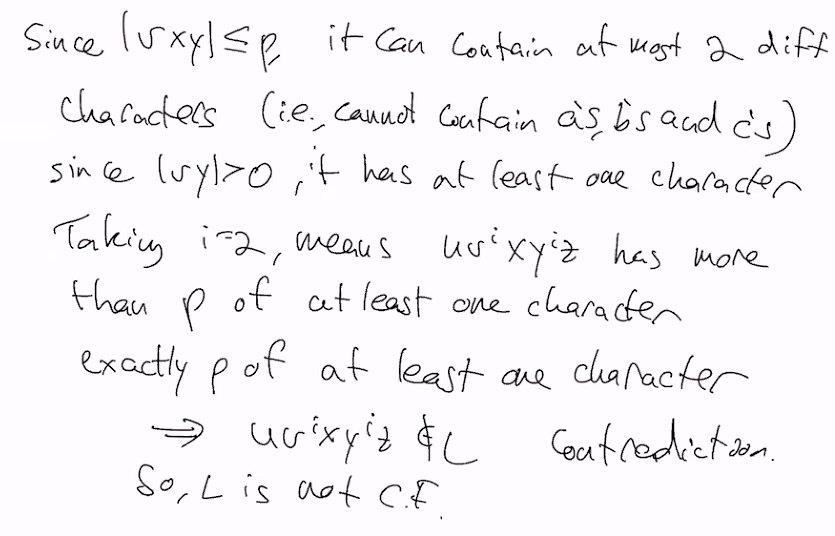 Since |vxy| ≤ p, it can contain at most 2 diff
characters (i.e., cannot contain a's, b's and c's)
since |vy|>0, it has at least one character
Taking i=2, means uvⁱxyⁱz has more
than p of at least one character
exactly p of at least one character
⇒ uvⁱxyⁱz ∉ L Contradiction.
So, L is not C.F.